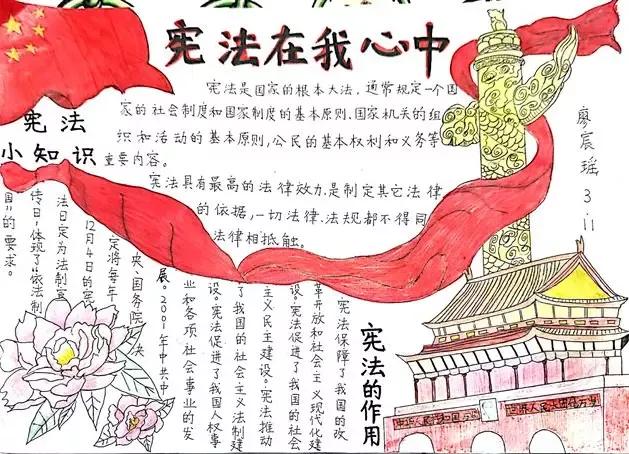 宪法在我心中
宪法是国家的根本大法,通常规定一个国
家的社会制度和国家制度的基本原则,国家机关的组
织和活动的基本原则,公民的基本权利和义务等
重要内容。
宪法具有最高的法律效力,是制定其它法律
的依据,一切法律、法规都不得同
法律相抵触。
廖宸瑶 3.11
宪法
小知识
宪法的作用
宪法保障了我国的改
革开放和社会主义现代化建
设。宪法促进了我国的社会
主义民主建设。宪法推动
了我国的社会主义法制建
设。宪法促进了我国人权事
业和各项社会事业的发
展。2001年中共中
央、国务院决
定将每年
12月4日的宪
法日定为法制宣
传日,体现了“依法制
国”的要求。